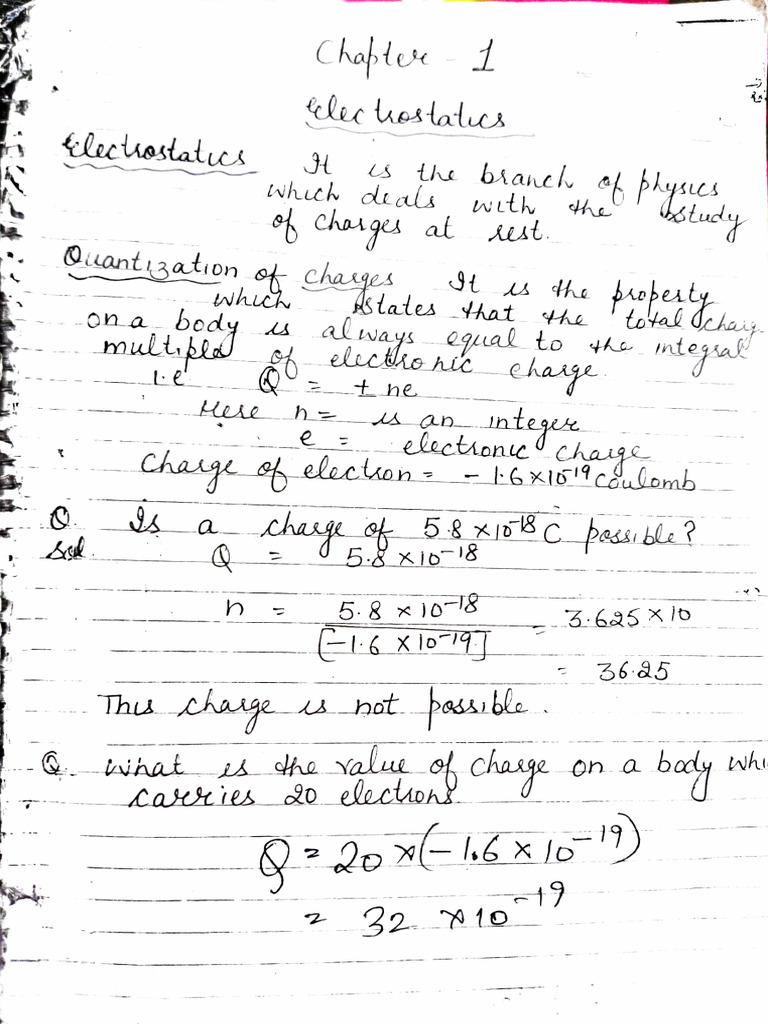 Chapter - 1
Electrostatics
Electrostatics It is the branch of physics
which deals with the study
of charges at rest.
Quantization of charges It is the property
which states that the total charg
on a body is always equal to the integral
multiple of electronic charge.
i.e Q = ± ne
Here n = is an integer
e = electronic charge
Charge of electron = - 1.6 × 10-19 Coulomb
Q Is a charge of 5.8 × 10-18 C possible?
Sol. Q = 5.8 × 10-18
n = 5.8 × 10-18 / [-1.6 × 10-19] = 3.625 × 10
= 36.25
This charge is not possible.
Q. What is the value of charge on a body whi
carries 20 electrons
Q = 20 × (- 1.6 × 10-19)
= 32 × 10-19